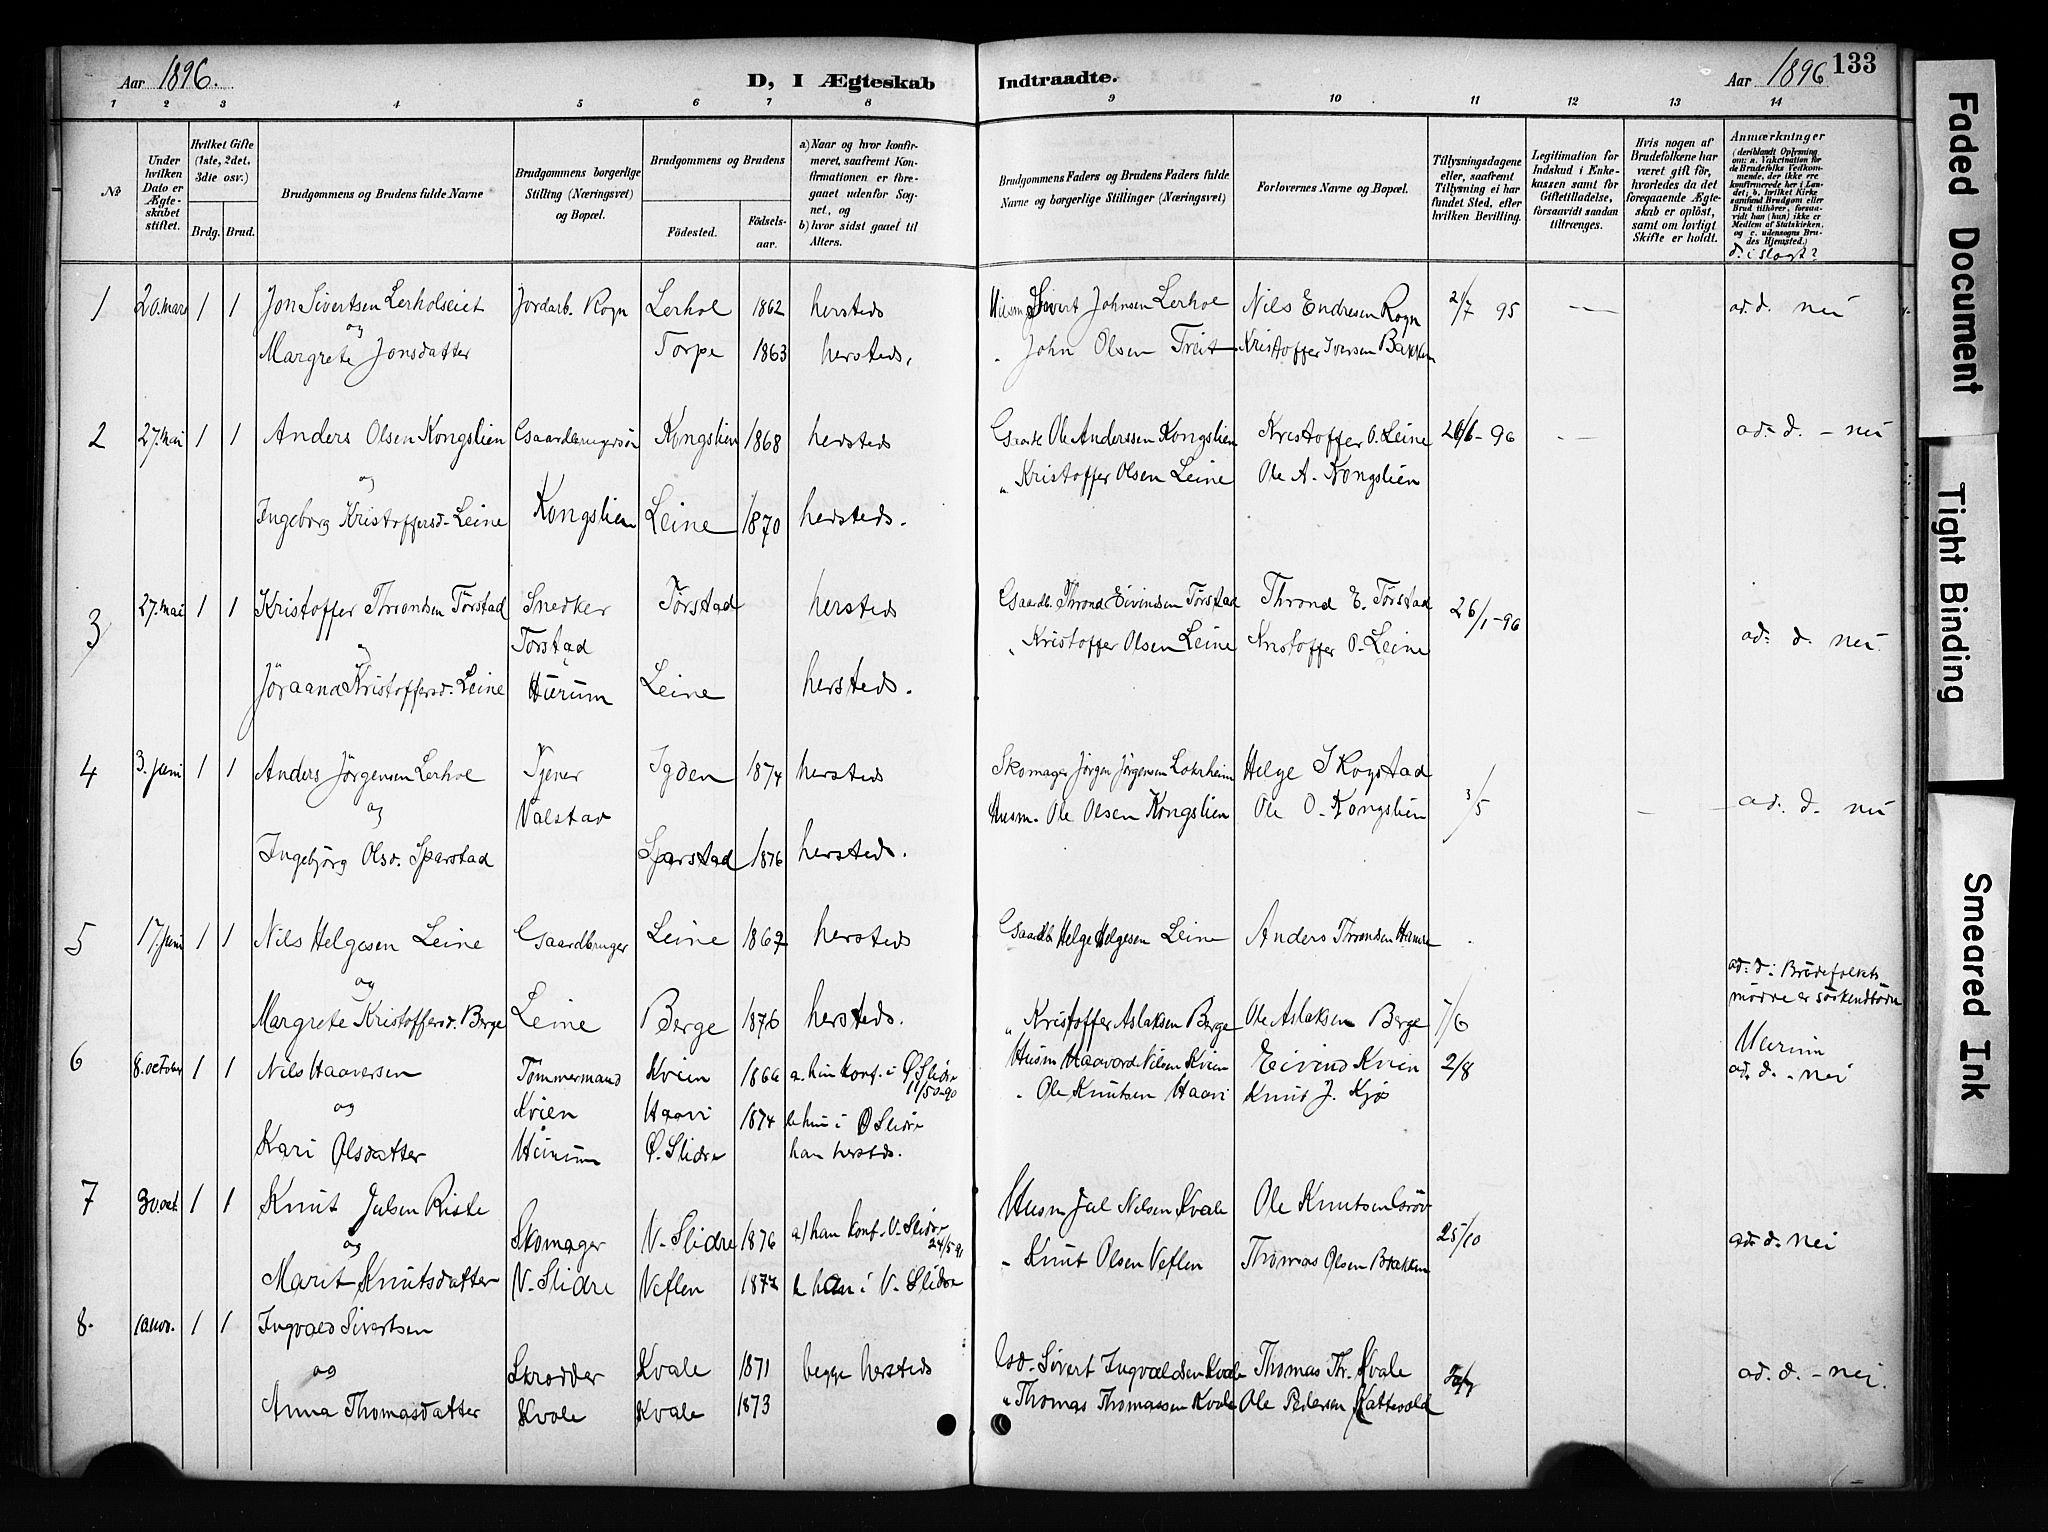 Aar 1896.
D, I Ægteskab
Indtraadte.
Aar 1896
133
1 2 3 4 5 6 7 8 9 10 11 12 13 14
No
Under hvilken Dato er Ægteskabet stiftet.
Hvilket Gifte (1ste, 2det, 3die osv.)
Brdg. Brud.
Brudgommens og Brudens fulde Navne
Brudgommens borgerlige Stilling (Næringsvei) og Bopæl.
Brudgommens og Brudens
Fødested.
Fødselsaar.
a) Naar og hvor konfirmeret, saafremt Konfirmationen er foregaaet udenfor Sognet, og
b) hvor sidst gaaet til Alters.
Brudgommens Faders og Brudens Faders fulde Navne og borgerlige Stillinger (Næringsvei)
Forlovernes Navne og Bopæl.
Tillysningsdagene eller, saafremt Tillysning ei har fundet Sted, efter hvilken Bevilling.
Legitimation for Indskud i Enkekassen samt for Giftetilladelse, forsaavidt saadan tiltrænges.
Hvis nogen af Brudefolkene har været gift før, hvorledes da det foregaaende Ægteskab er opløst, samt om lovligt Skifte er holdt.
Anmærkninger
(deriblandt Oplysning om: a. Vakcination for de Brudefolks Vedkommende, der ikke ere konfirmerede her i Landet; b. hvilket Kirkesamfund Brudgom eller Brud tilhører, forsaavidt han (hun) ikke er Medlem af Statskirken, og c. udensogns Brudes Hjemsted.)
d. i slægt?
1 20. mars 1 1 Jon Sivertsen Lerholseiet Jordarb. Rogn Lerhol 1862 hersteds Husm. Sivert Johnsen Lerhol Nils Endresen Rogn 2/7 95 — ad. d. nei
og
Margrete Jonsdatter Torpe 1863 hersteds. " John Olsen Treit Kristoffer Iversen Bakken
2 27. mai 1 1 Anders Olsen Kongslien Gaardbrugersøn Kongslien 1868 hersteds Gaardb. Ole Anderssen Kongslien Kristoffer O. Leine 26/6 - 96 — ad. d. - nei
og " Kristoffer Olsen Leine Ole A. Kongslien
Ingeborg Kristoffersd. Leine Kongslien Leine 1870 hersteds.
3 27. mai 1 1 Kristoffer Throndsen Tørstad Snedker Tørstad hersteds Gaardb. Thrond Eivindsen Tørstad Thrond E. Tørstad 26/1 - 96
og Tørstad " Kristoffer Olsen Leine Kristoffer O. Leine ad. d. nei
Jøraana Kristoffersd. Leine Hurum Leine hersteds.
4 3. juni 1 1 Anders Jörgensen Lerhol Tjener Igden 1874 hersteds Skomager Jörgen Jörgensen Helge Skogstad
og Valstad Husm. Ole Olsen Kongslien Ole O. Kongslien 3/5 — ad. d. nei
Ingebjörg Olsd. Sparstad Sparstad 1876 hersteds.
5 17. juni 1 1 Nils Helgesen Leine Gaardbruger Leine 1867 hersteds Gaardb Helge Helgesen Leine Anders Throndsen
og ad. d: Brudefolkets
mødre er
Margrete Kristoffersd. Berge Leine Berge 1876 hersteds. " Kristoffer Aslaksen Berge Ole Aslaksen Berge 7/6
Hurum
6 8. october 1 1 Nils Haaversen Tømmermand Kvien 1866 a. hun konf. i Ø Slidre Husm Haavord Nilsen Kvien Eivind Kvien 2/8 ad. d. - nei
og Kvien Haavi 1874 b hun i Ø Slidre " Ole Knutsen Haavi Knut J. Kjös
Kari Olsdatter Hurum Ø. Slidre han hersteds.
7 30. oct. 1 1 Knut Julsen Riste Husm Jul Nilsen Kvale Ole Knutsen
og Skomager V. Slidre 1876 a) han konf. V. Slidre 24/5-91 25/10 ad. d. nei
" Knut Olsen Veflen Thomas Olsen Bakken
Marit Knutsdatter V. Slidre Veflen 1877 b han i V. Slidre
8. 1 1 Ingvald Sivertsen
og Skrædder Kvale 1871 begge hersteds Sivert Ingvaldsen Kvale Thomas Th. Kvale ad. d. - nei.
Anna Thomasdatter Kvale Kvale 1873 " Thomas Thomassen Kvale Ole Pedersen Kattevold
Faded Document
Tight Binding
Smeared Ink